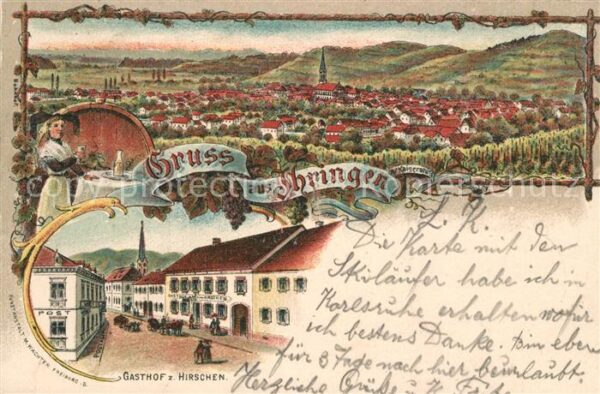 Gruss
aus Ihringen
L. K.
Die Karte mit den
Skiläufer habe ich in
Karlsruhe erhalten wofür
ich bestens Danke. Bin eben
für 3 Tage nach hier beurlaubt.
Herzliche Grüße u. K.
POST
GASTHOF Z. HIRSCHEN.
KUNSTANSTALT M. WACHTER, FREIBURG